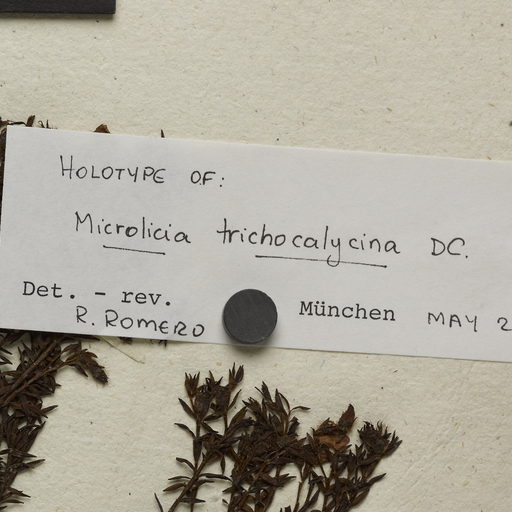 HOLOTYPE OF:
Microlicia trichocalycina DC.
Det. - rev.
R. ROMERO
München MAY 2